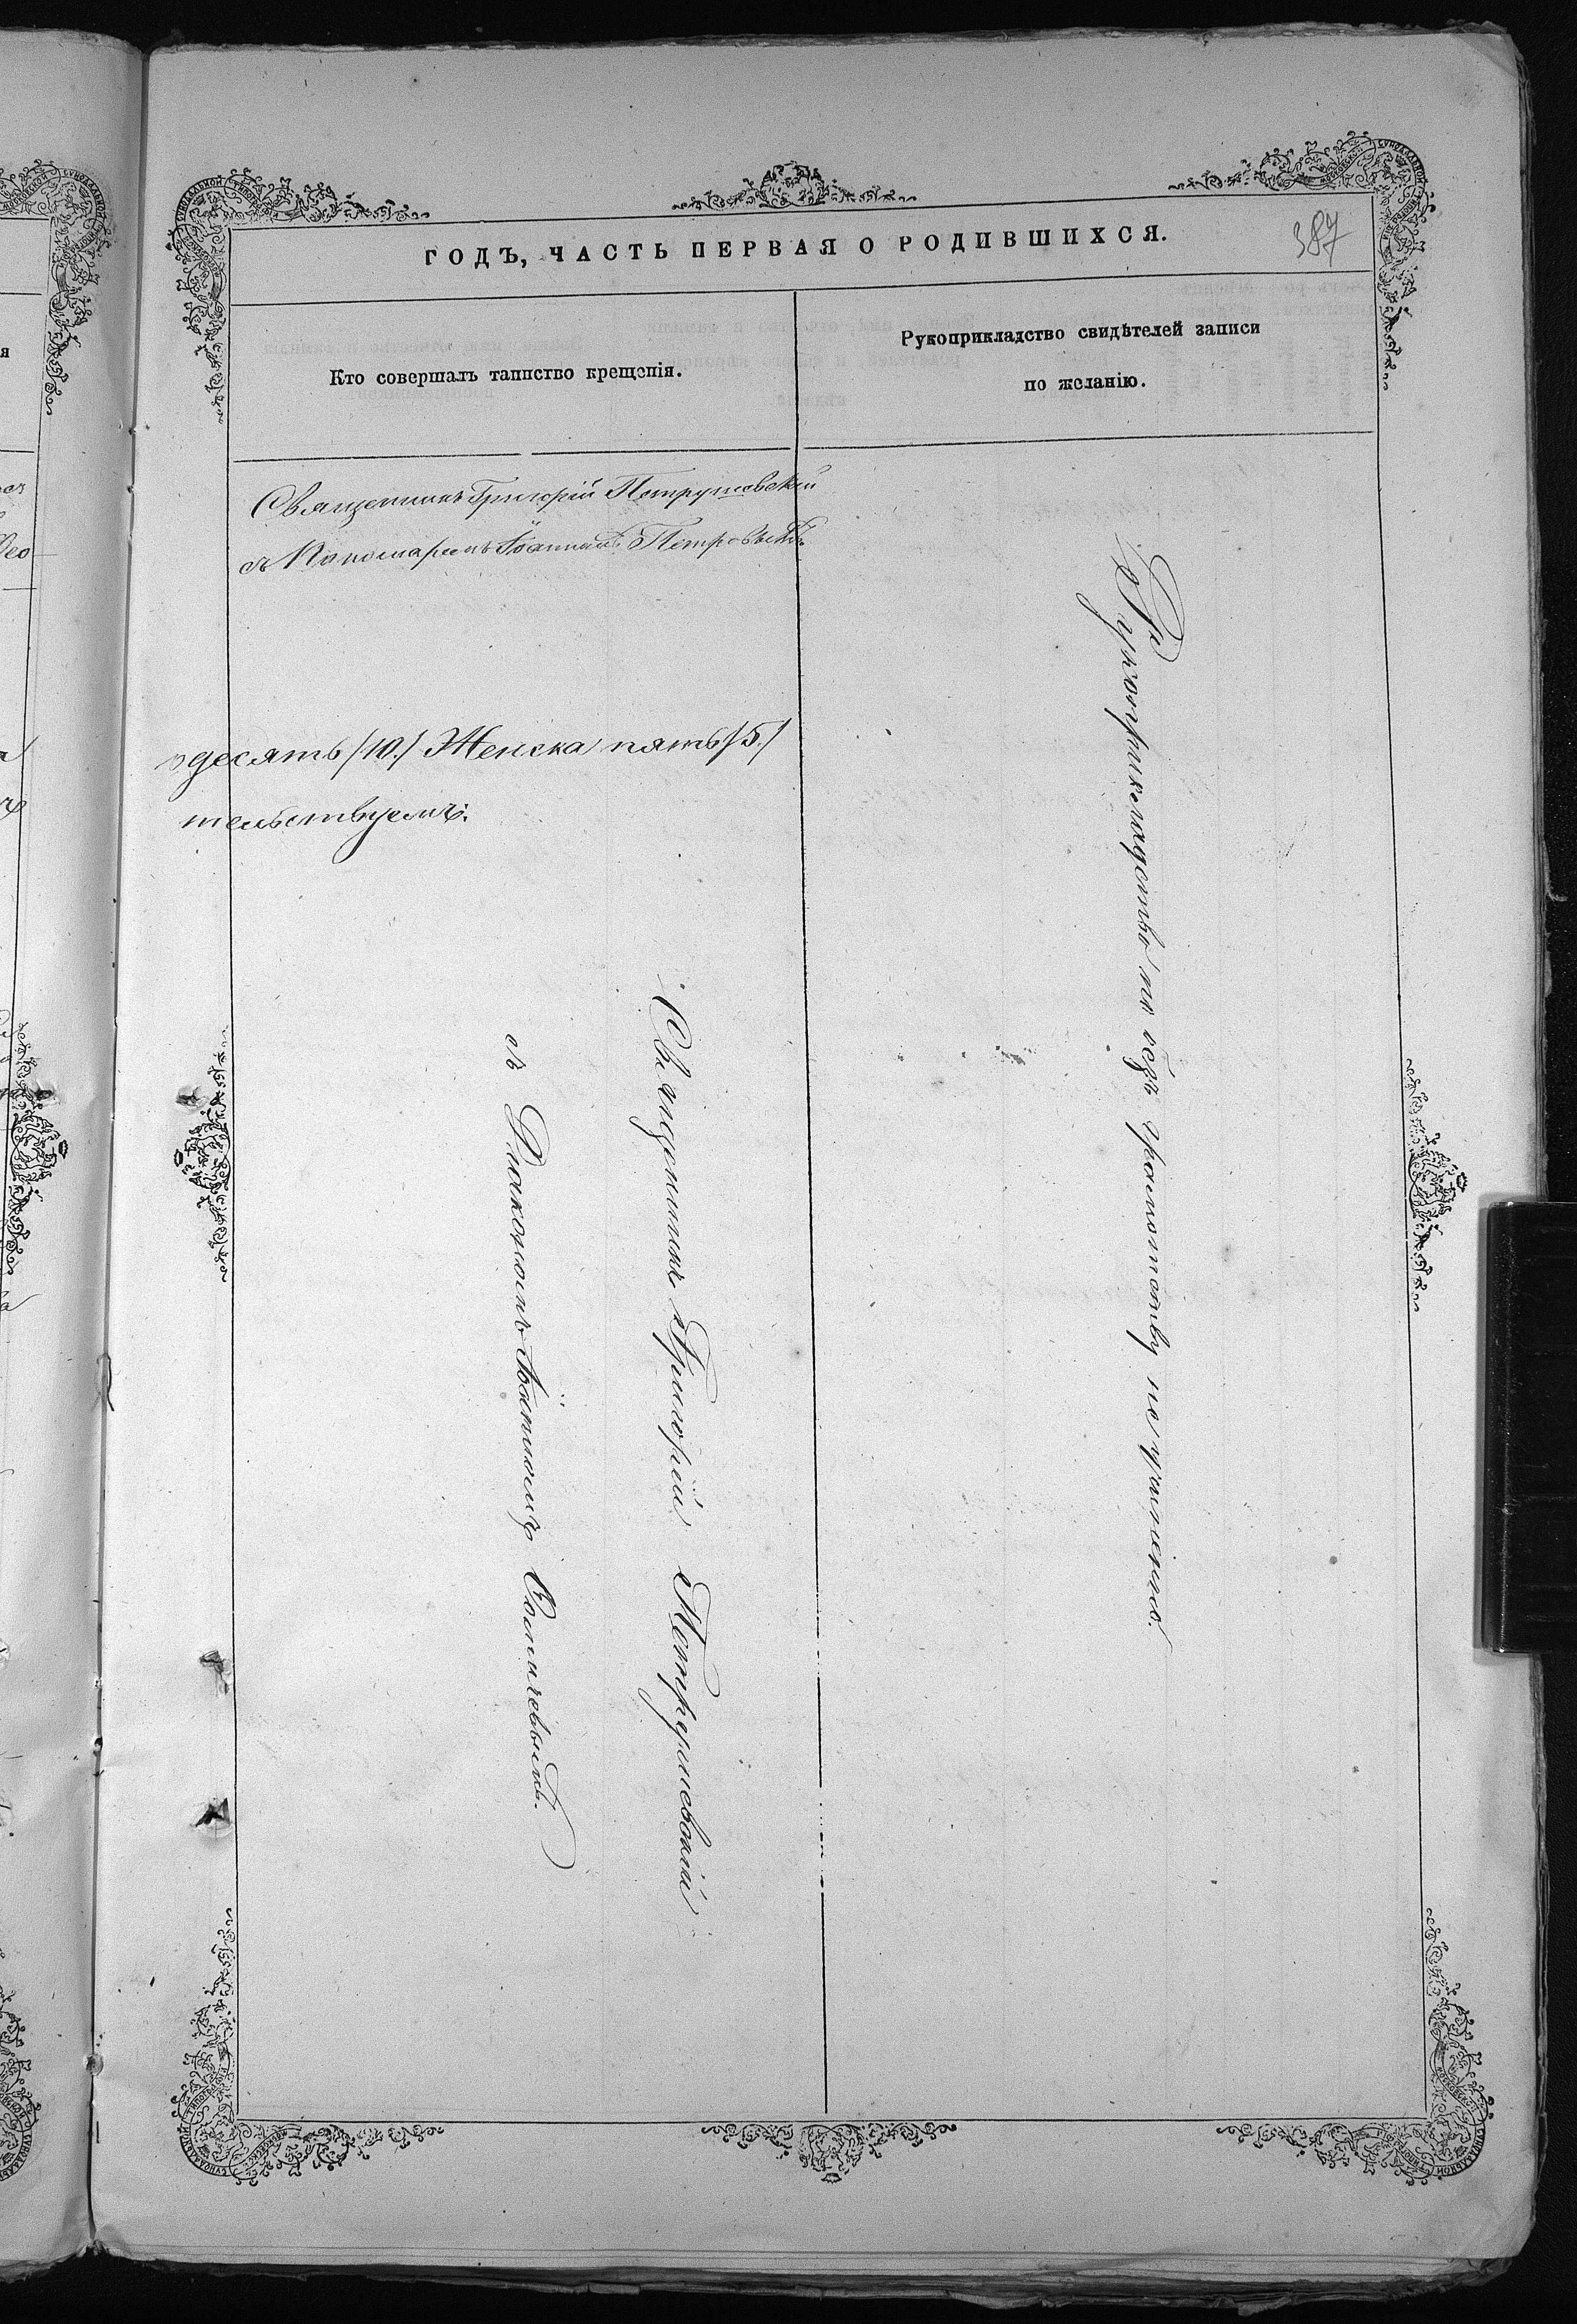 ГОДЪ, ЧАСТЬ ПЕРВАЯ О РОДИВШИХСЯ.
387
Кто совершалъ таинство крещенія.
Рукоприкладство свидѣтелей записи
по желанію.
Священникъ Григорій Петрушевскій
съ Пономаремъ Іоанномъ Петровымъ
десять /10./ Женска пять /5./
тельствуемъ.
Священникъ Григорій Петрушевскій
съ Диакономъ Іоанномъ
Рукоприкладство по безъ грамотству не учинено.